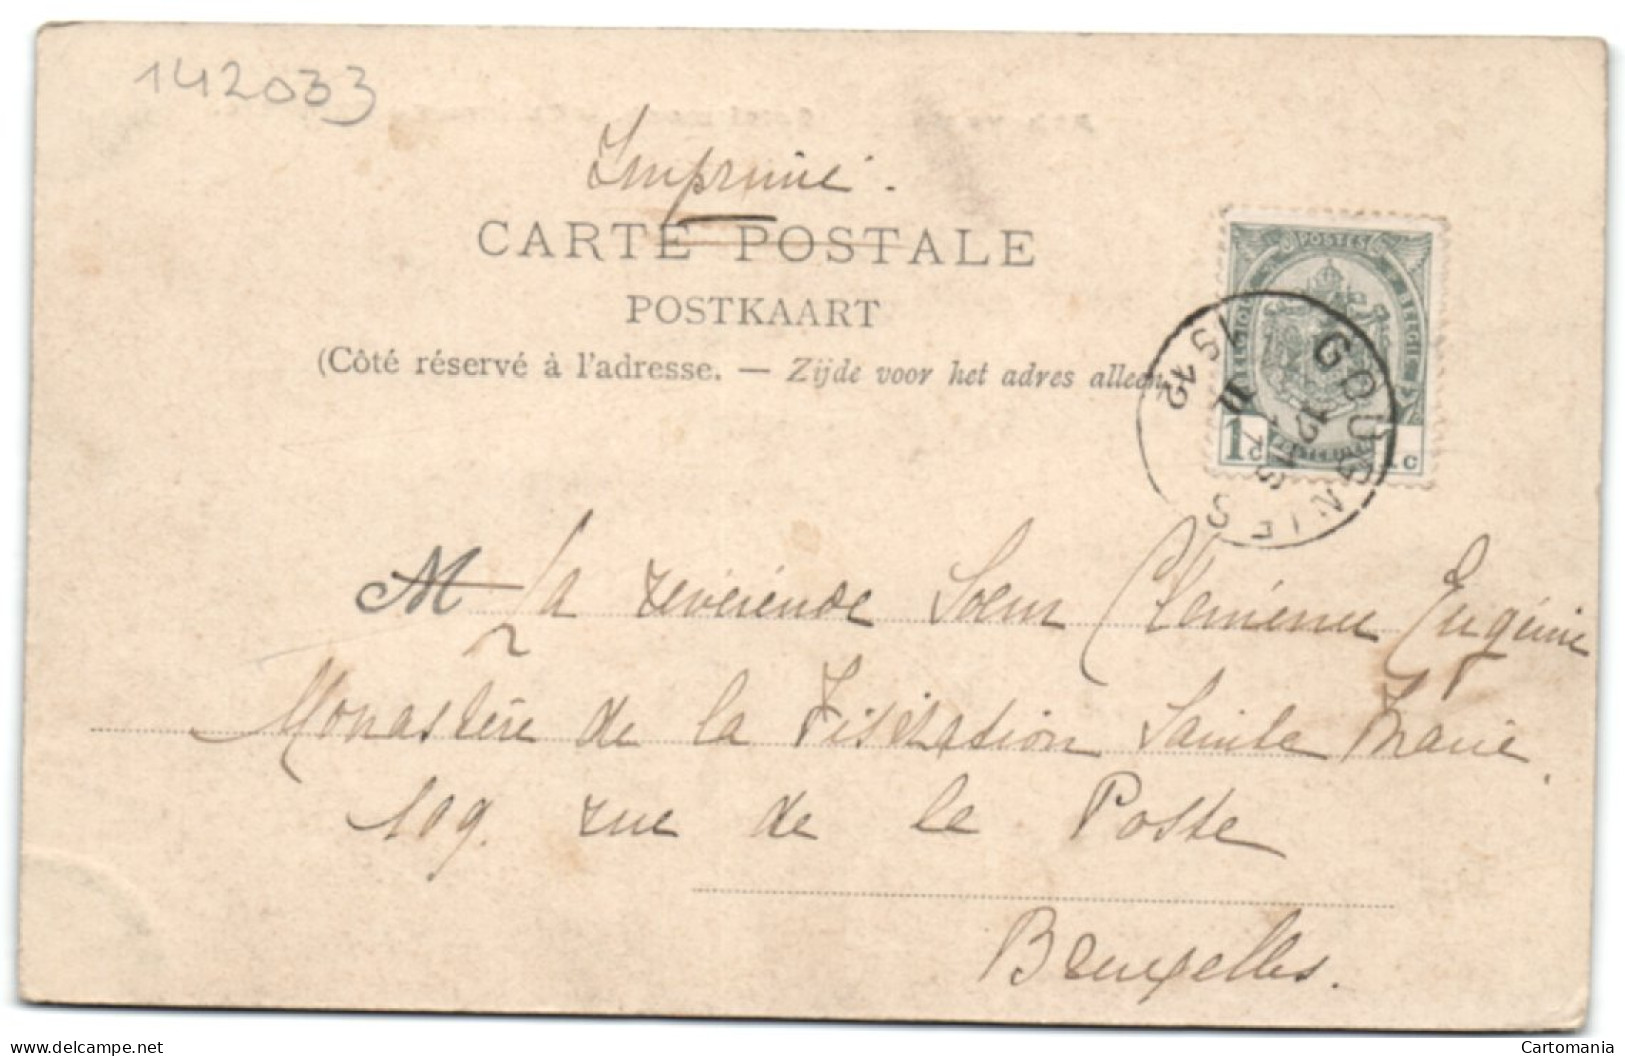 142033
Imprimé.
CARTE POSTALE
POSTKAART
(Côté réservé à l'adresse. — Zijde voor het adres alleen
POSTES
BELGIQUE BELGIË
1c 1c
GOUGNIES
12
M La révérende Soeur Eugénie
Monastère de la Visitation Sainte Marie.
109. rue de la Poste
Bruxelles.
www.delcampe.net
Cartomania